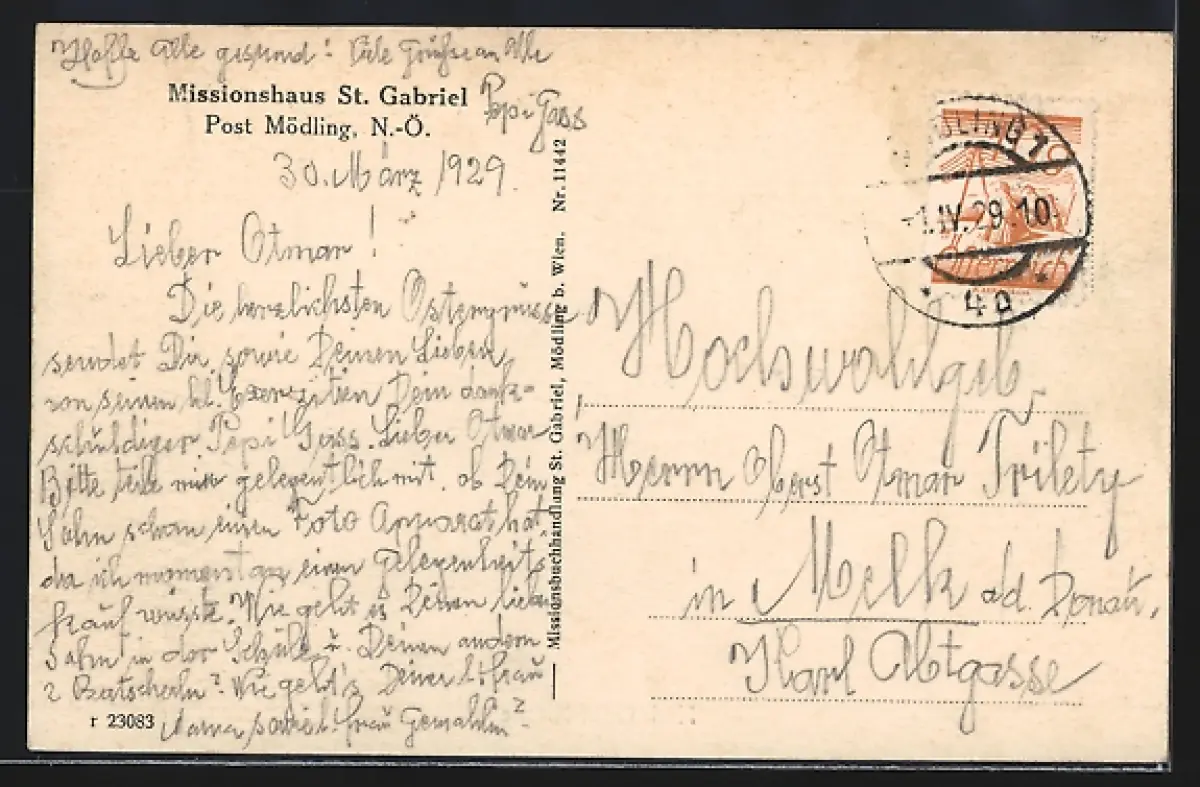 Hoffe Alle gesund! Viele Grüsse an Alle
Pepi Gass
Missionshaus St. Gabriel
Post Mödling, N.-Ö.
30. März 1929.
Lieber Otmar!
Die herzlichsten Ostergrüsse
sendet Dir, sowie Deinen Lieben,
von seinen hl. Exerzitien Dein dank-
schuldiger Pepi Gass. Lieber Otmar
Bitte teile mir gelegentlich mit, ob Dein
Sohn schon einen Foto Apparat hat,
da ich momentan einen Gelegenheits
kauf wüsste. Wie geht es Deinen lieben
Sohn in der Schule u. Deinen andern
2 Wie geht's Deiner l. Frau
Mama sowie l. Frau Gemahlin?
r 23083
Missionsbuchhandlung St. Gabriel, Mödling b. Wien. Nr. 11442
MÖDLING 1
1.IV.29.10
4a
Österreich
Hochwohlgeb.
Herrn Oberst Otmar Trilety
in Melk a.d. Donau,
Karl Abtgasse